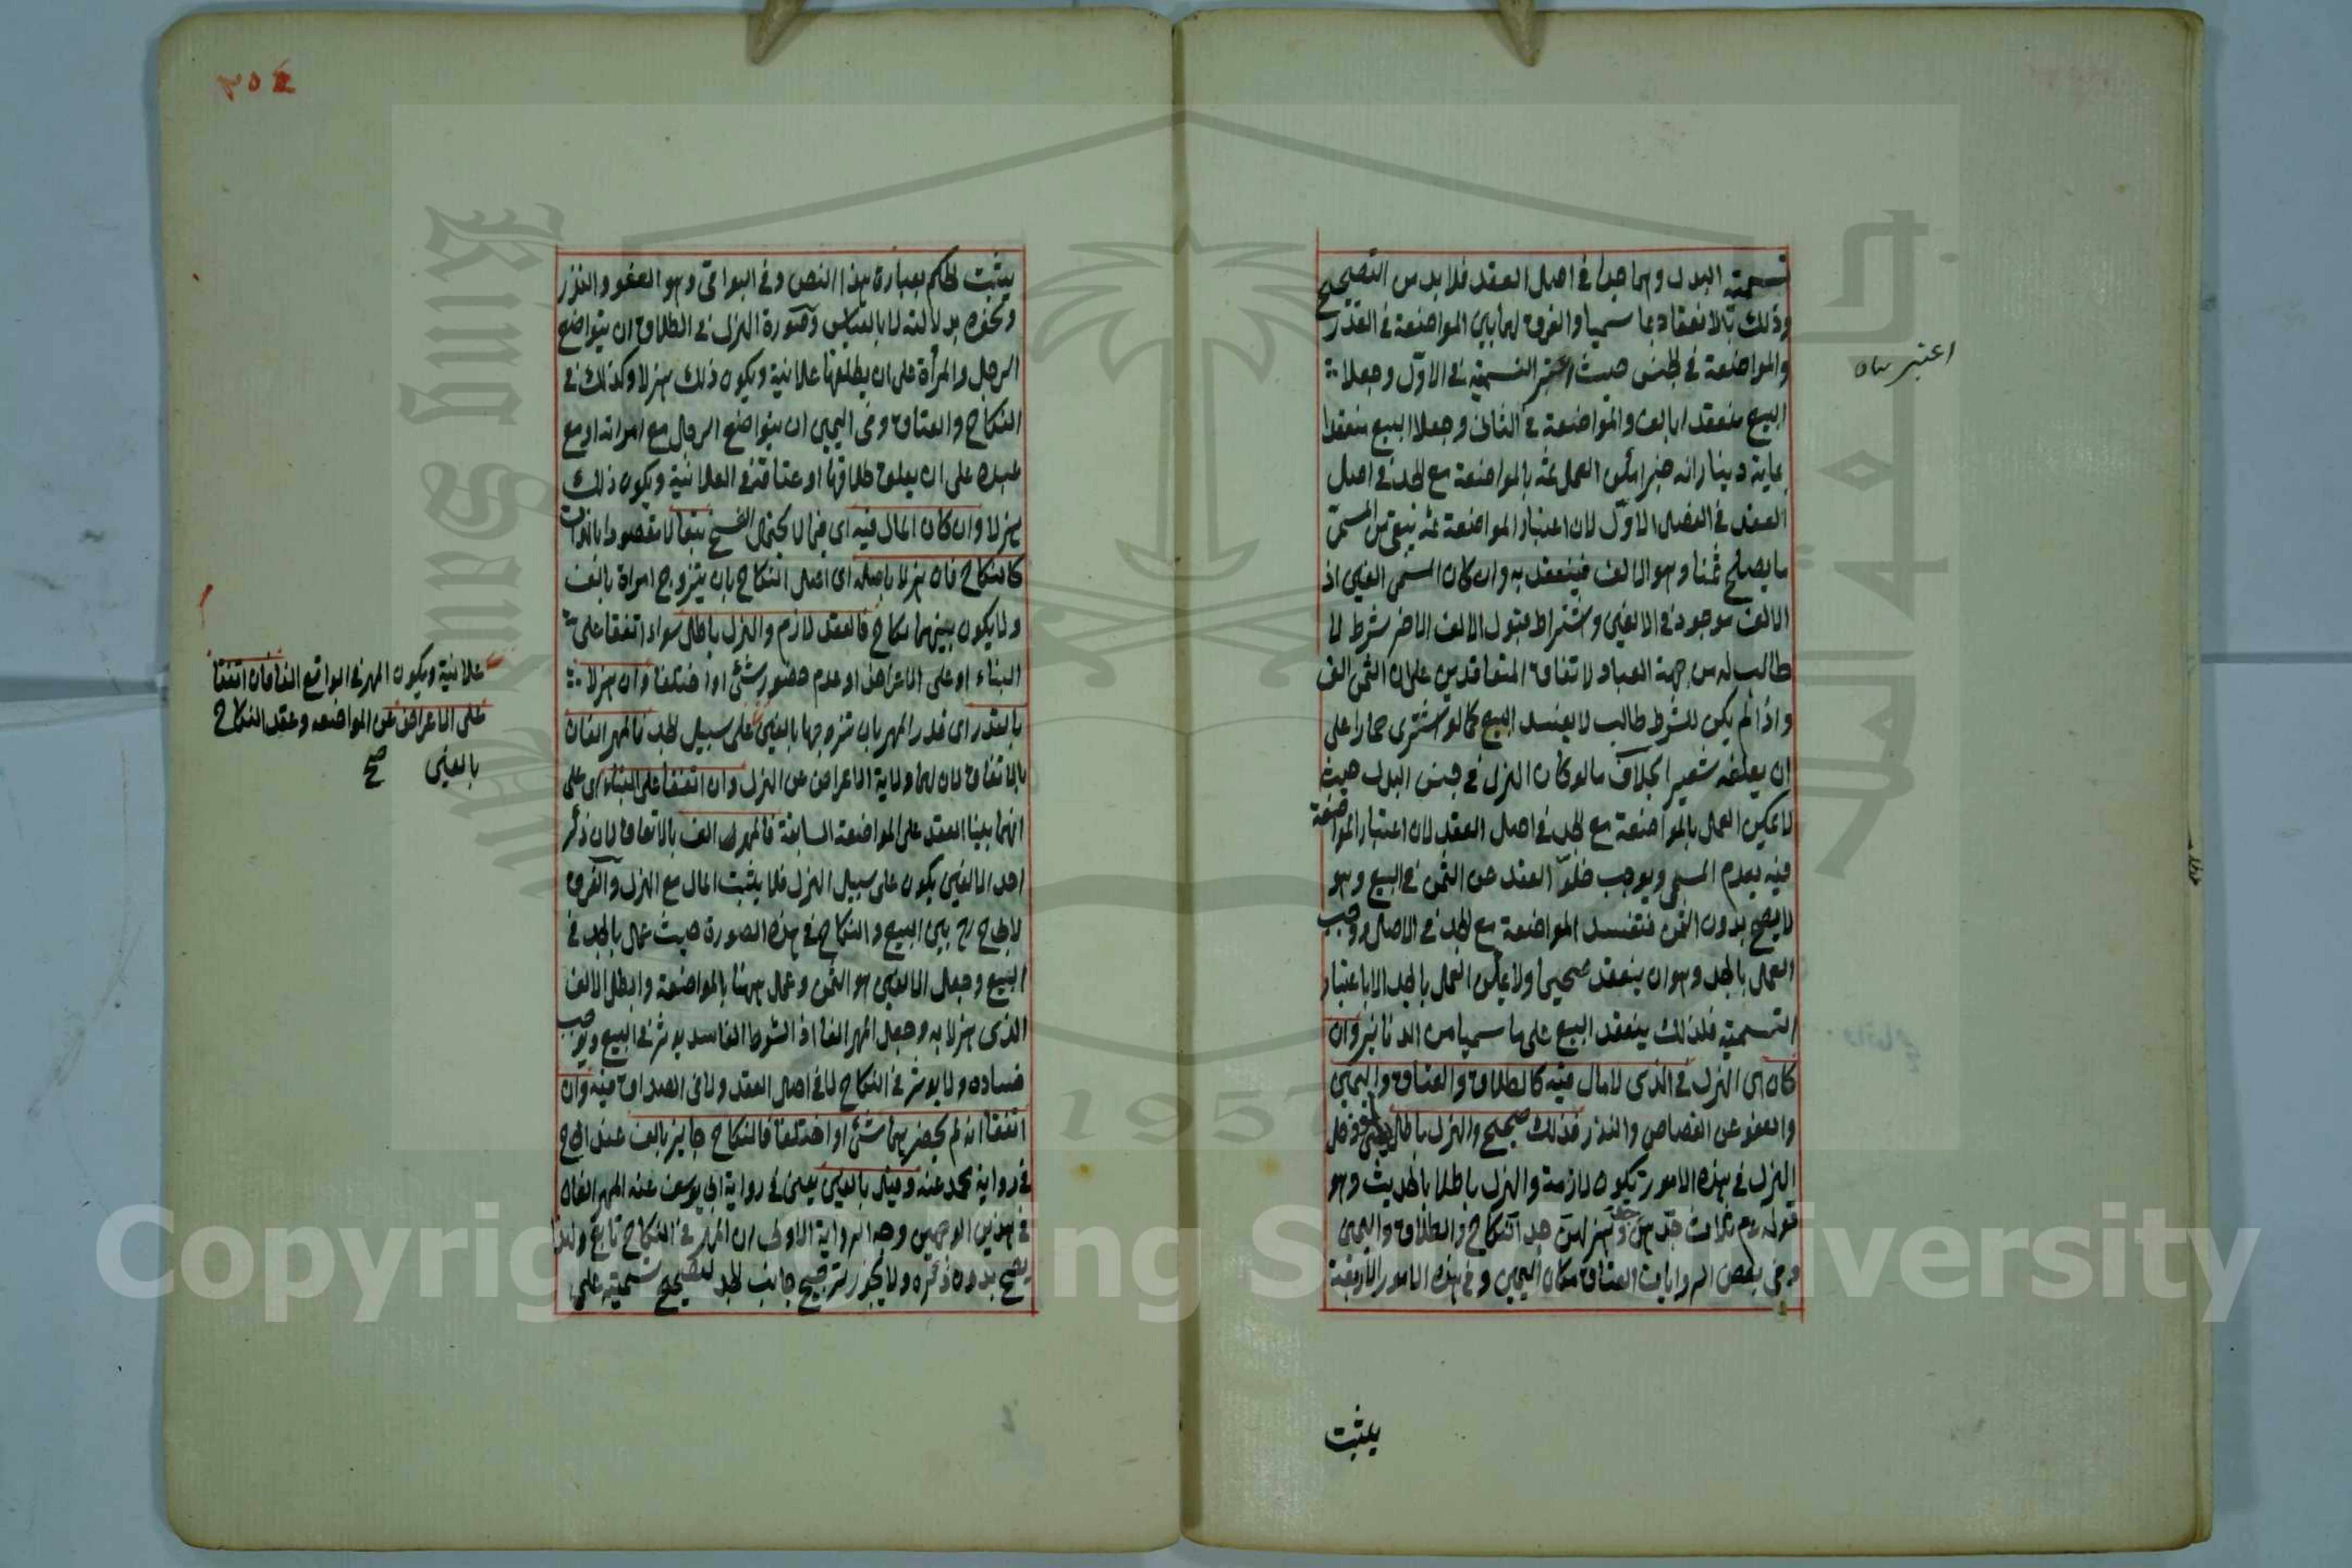 تسمية البدل وهما جدا في اصل العقد فلا بد من التصحيح
وذلك بالانعقاد بما سميا والفرق لهما بين المواضعة في القدر
والمواضعة في الجنس حيث اعتبر التسمية في الاول وجعلا
البيع منعقدا بالف والمواضعة في الثاني وجعلا البيع منعقدا
بماية دينار انه يمكن العمل ثمه بالمواضعة مع الجد في اصل
العقد في الفصل الاول لان اعتبار المواضعة ثمه يبقى من المسمى
ما يصلح ثمنا وهو الالف فينعقد به وان كان المسمى الفين اذ
الالف موجود في الالفين واشتراط قبول الالف الاخر شرط لا
طالب له من جهة العباد لاتفاق المتعاقدين على ان الثمن الف
واذا لم يكن للشرط طالب لا يفسد البيع كما لو اشترى حمارا على
ان يعلفه شعيرا بخلاف ما لو كان الهزل في جنس البدل حيث
لا يمكن العمل بالمواضعة مع الجد في اصل العقد لان اعتبار المواضعة
فيه يعدم المسمى ويوجب خلو العقد عن الثمن في البيع وهو
لا يصح بدون الثمن فتفسد المواضعة مع الجد في الاصل ووجب
العمل بالجد وهو ان ينعقد صحيحا ولا يمكن العمل بالجد الا باعتبار
التسمية فلذلك ينعقد البيع على ما سميا من الدنانير وان
كان اى الهزل في الذى لا مال فيه كالطلاق والعتاق واليمين
والعفو عن القصاص والنذر فذلك صحيح والهزل باطل
الهزل في هذه الامور تكون لازمة والهزل باطلا بالحديث وهو
قوله عم ثلاث جدهن جد وهزلهن جد النكاح والطلاق واليمين
وفى بعض الروايات العتاق مكان اليمين وفي هذه الامور الاربعة
اعتبر
يثبت
يثبت الحكم بعبارة هذا النص وفى البواقى وهو العفو والنذر
ونحوه بدلالته لا بالقياس وصورة الهزل في الطلاق ان يتواضع
الرجل والمرأة على ان يطلقها علانية ويكون ذلك هزلا وكذلك في
النكاح والعتاق وفى اليمين ان يتواضع الرجل مع امراته او مع
عبده على ان يعلق طلاقها او عتاقه في العلانية ويكون ذلك
هزلا وان كان المال فيه اى فيما لا يحتمل الفسخ تبعا لا مقصودا بالذات
كالنكاح فان هزلا باصله اى اصل النكاح بان يتزوج امراة بالف
ولا يكون بينهما نكاح فالعقد لازم والهزل باطل سواء اتفقا على
البناء او على الاعراض او عدم حضور شئ او اختلفا وان هزلا
بالقدر اى قدر المهر بان تزوجها بالفين على سبيل الجد فالمهر الفان
بالاتفاق لان لهما ولاية الاعراض عن الهزل وان اتفقا على البناء اى على
انهما بنيا العقد على المواضعة السابقة فالمهر الف بالاتفاق لان ذكر
احد الالفين يكون على سبيل الهزل فلا يثبت المال مع الهزل والفرق
لابي ح رح بين البيع والنكاح في هذه الصورة حيث عمل بالجد في
البيع وجعل الالفين هو الثمن وعمل ههنا بالمواضعة وابطل الالف
الذى هزلا به وجعل المهر الفا اذ الشرط الفاسد يوثر في البيع ويوجب
فساده ولا يوثر في النكاح لا في اصل العقد ولا في الصداق فيه وان
اتفقا انه لم يحضرهما شئ او اختلفا فالنكاح جايز بالف عند ابي ح
في رواية محمد عنه وقيل بالفين يعنى في رواية ابي يوسف عنه المهر الفان
في هذين الوجهين وجه الرواية الاولى ان المهر في النكاح تابع ولهذا
يصح بدون ذكره ولا يجوز ترجيح جانب الجد لتصحيح تسميته على
علانية ويكون المهر في الواقع الفا فان اتفقا
على الاعراض عن المواضعه وعقد النكاح
بالفين صح